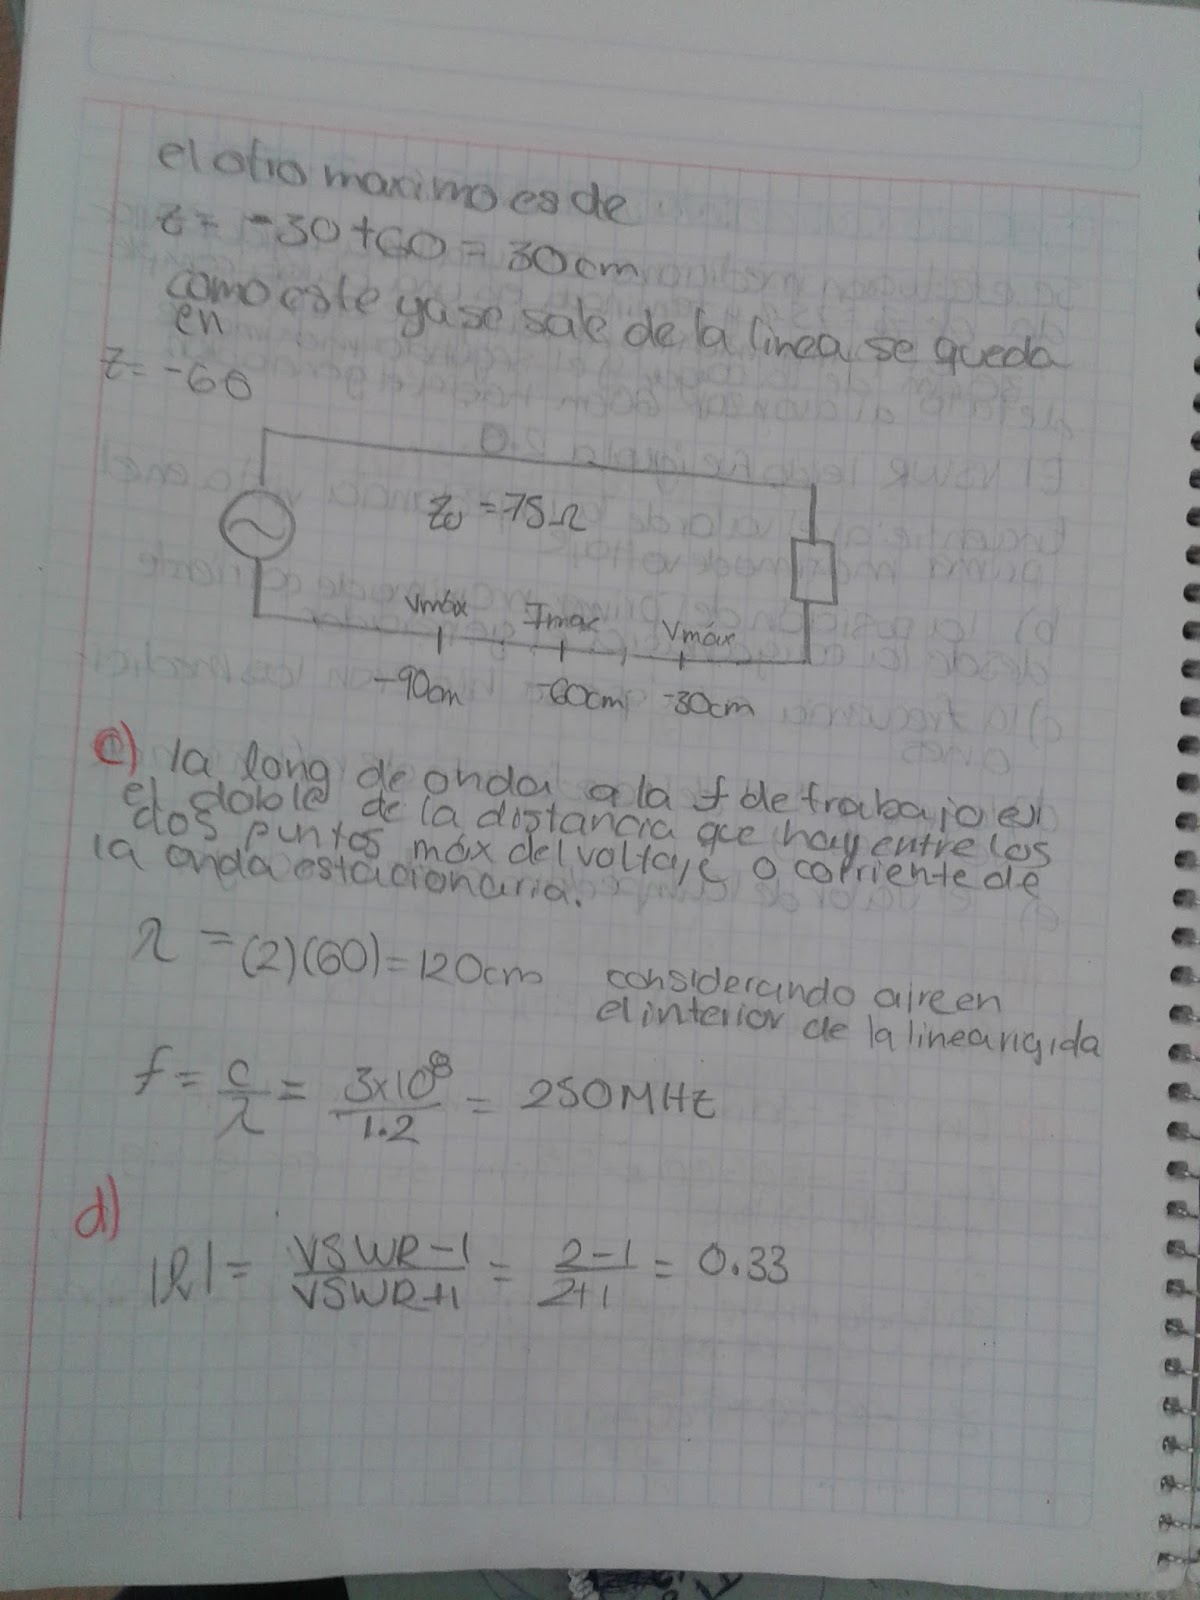 el otro maximo es de
z = -30+60 = 30cm
como este ya se sale de la linea se queda
en
z= -60
Z0 = 75Ω
Vmáx Imax Vmáx
-90cm -60cm -30cm
c) la long de onda a la f de trabajo es
el doble de la distancia que hay entre los
dos puntos máx del voltaje o corriente de
la onda estacionaria.
λ = (2)(60) = 120cm considerando aire en
el interior de la linea rigida
f = c/λ = 3x10⁸/1.2 = 250MHz
d)
|ρ| = VSWR-1/VSWR+1 = 2-1/2+1 = 0.33